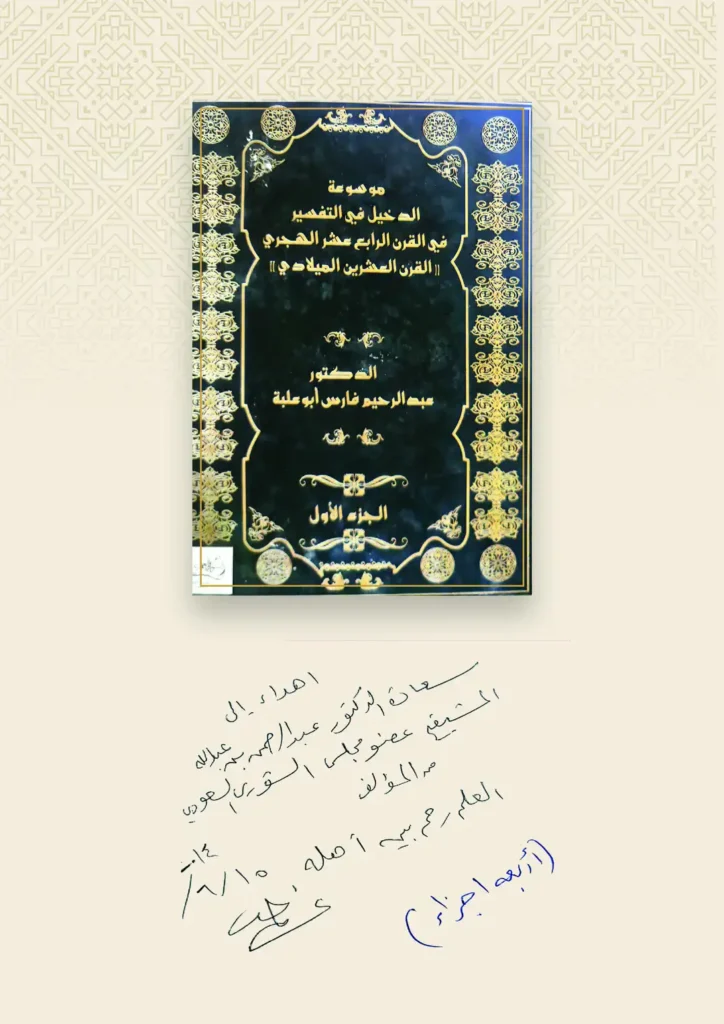 موسوعة
الدخيل في التفسير
في القرن الرابع عشر الهجري
(( القرن العشرين الميلادي ))
الدكتور
عبدالرحيم فارس أبو علبة
الجزء الأول
اهداء إلى
سعادة الدكتور عبدالرحمن بن عبدالله
المشيقح عضو مجلس الشورى السعودي
من المؤلف
العلم رحم بين أهله
٢٠١٤/٦/١٠
(أربعة اجزاء)